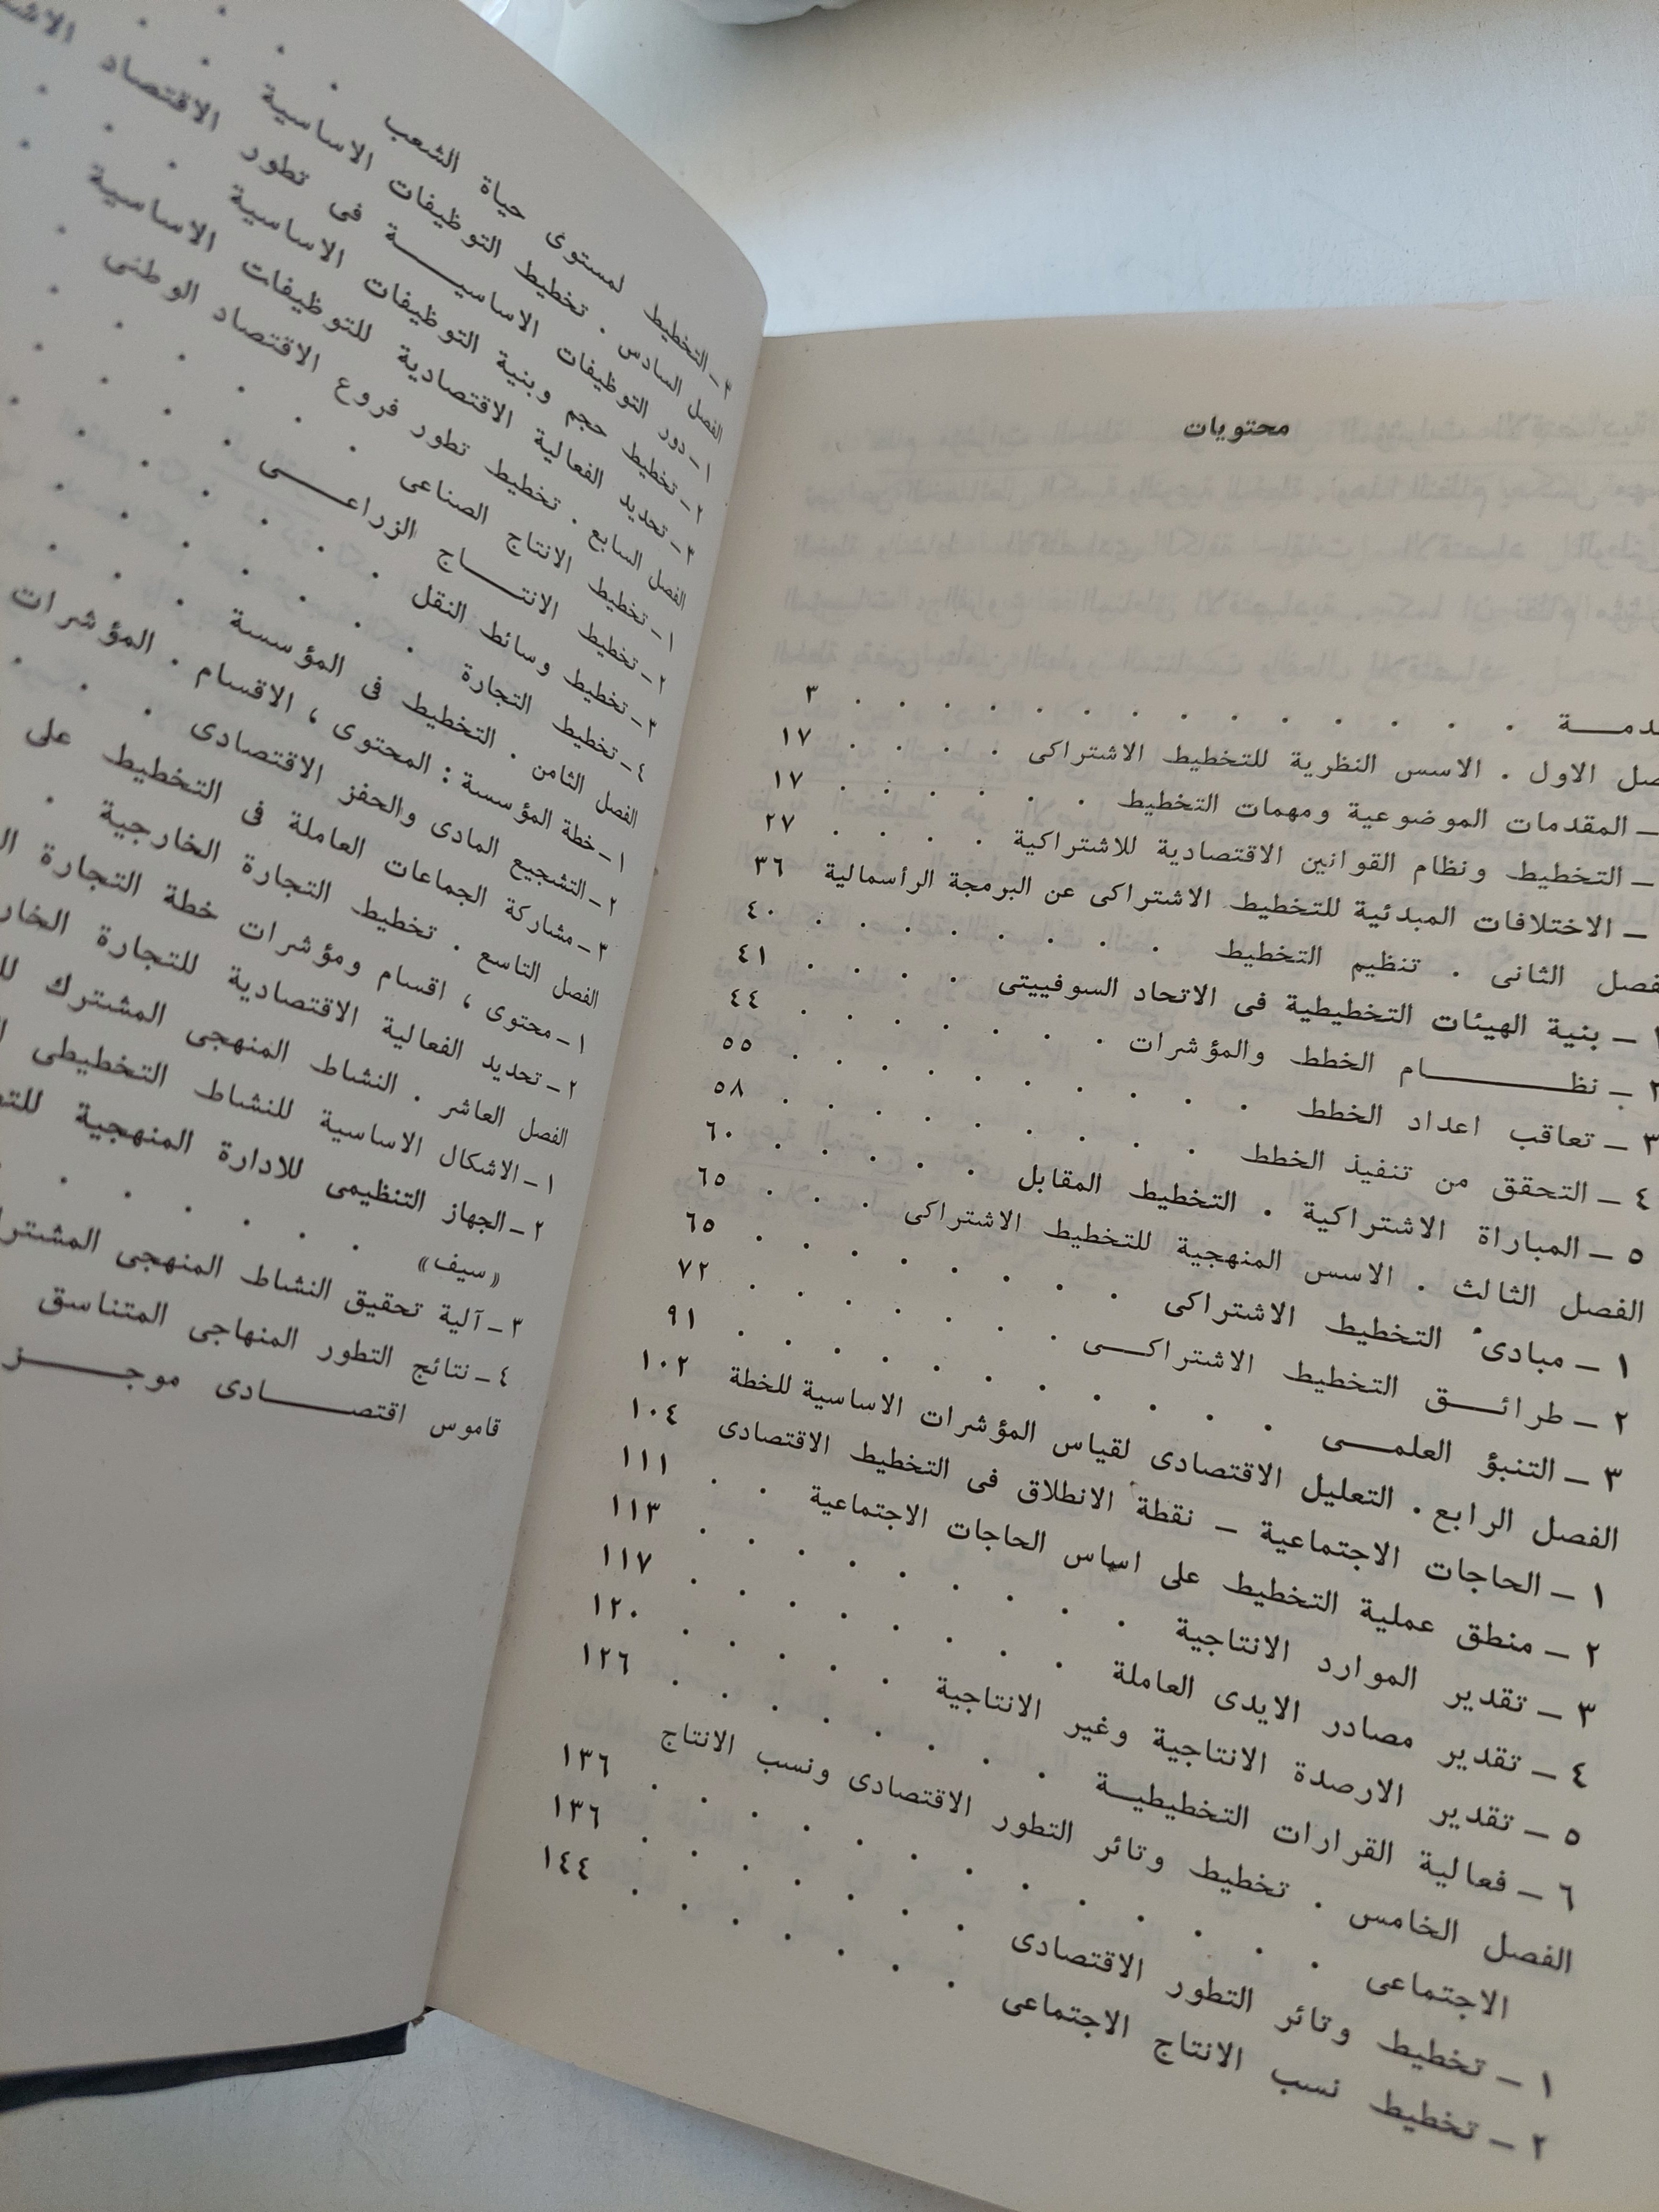 محتويات
٣ . . . . . . . . . . . . .
الاول . الاسس النظرية للتخطيط الاشتراكى . . . . ١٧
— المقدمات الموضوعية ومهمات التخطيط . . . . . . ١٧
— التخطيط ونظام القوانين الاقتصادية للاشتراكية . . . . ٢٧
— الاختلافات المبدئية للتخطيط الاشتراكى عن البرمجة الرأسمالية ٣٦
الثانى . تنظيم التخطيط . . . . . . . . ٤٠
١ — بنية الهيئات التخطيطية فى الاتحاد السوفييتى . . . . ٤١
٢ — نظـــــــام الخطط والمؤشرات . . . . . . . ٤٤
٣ — تعاقب اعداد الخطط . . . . . . . . . ٥٥
٤ — التحقق من تنفيذ الخطط . . . . . . . . ٥٨
٥ — المباراة الاشتراكية . التخطيط المقابل . . . . . ٦٠
الفصل الثالث . الاسس المنهجية للتخطيط الاشتراكى . . . ٦٥
١ — مبادئ التخطيط الاشتراكى . . . . . . . ٦٥
٢ — طرائـــق التخطيط الاشتراكـــى . . . . . . ٧٢
٣ — التنبؤ العلمـــى . . . . . . . . . ٩١
الفصل الرابع . التعليل الاقتصادى لقياس المؤشرات الاساسية للخطة ١٠٢
١ — الحاجات الاجتماعية — نقطة الانطلاق فى التخطيط الاقتصادى ١٠٤
٢ — منطق عملية التخطيط على اساس الحاجات الاجتماعية . . ١١١
٣ — تقدير الموارد الانتاجية . . . . . . . . ١١٣
٤ — تقدير مصادر الايدى العاملة . . . . . . . ١١٧
٥ — تقدير الارصدة الانتاجية وغير الانتاجية . . . . . ١٢٠
٦ — فعالية القرارات التخطيطيـــة . . . . . . . ١٢٦
الفصل الخامس . تخطيط وتائر التطور الاقتصادى ونسب الانتاج
الاجتماعى . . . . . . . . . . . ١٣٦
١ — تخطيط وتائر التطور الاقتصادى . . . . . . ١٣٦
٢ — تخطيط نسب الانتاج الاجتماعى . . . . . . ١٤٤
٣ — التخطيط لمستوى حياة الشعب
الفصل السادس . تخطيط التوظيفات الاساسية
١ — دور التوظيفات الاساسيـــة فى تطور الاقتصاد
٢ — تخطيط حجم وبنية التوظيفات الاساسية
٣ — تحديد الفعالية الاقتصادية للتوظيفات الاساسية
الفصل السابع . تخطيط تطور فروع الاقتصاد الوطنى
١ — تخطيط الانتاج الصناعى
٢ — تخطيط الانتـــاج الزراعـــى
٣ — تخطيط وسائط النقل
٤ — تخطيط التجارة
الفصل الثامن . التخطيط فى المؤسسة
١ — خطة المؤسسة : المحتوى ، الاقسام . المؤشرات
٢ — التشجيع المادى والحفز الاقتصادى
٣ — مشاركة الجماعات العاملة فى التخطيط على
الفصل التاسع . تخطيط التجارة الخارجية
١ — محتوى ، اقسام ومؤشرات خطة التجارة
٢ — تحديد الفعالية الاقتصادية للتجارة
الفصل العاشر . النشاط المنهجى المشترك
١ — الاشكال الاساسية للنشاط التخطيطى
٢ — الجهاز التنظيمى للادارة المنهجية
«سيف»
٣ — آلية تحقيق النشاط المنهجى
٤ — نتائج التطور المنهاجى المتناسق
قاموس اقتصـــادى موجـــز